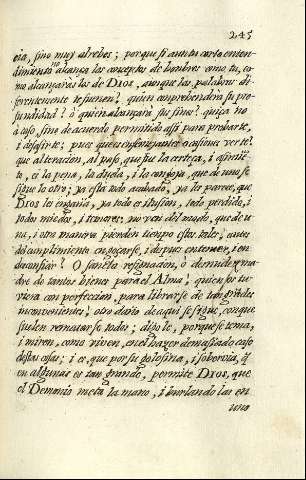 245
cia, sino muy al rebes; porque si a un tu corto enten-
dimiento no alcanza los conceptos de hombres como tu, co-
mo alcanzarà los de Dios, aunque las palabras di-
ferentemente te suenen? quien comprehenderà su pro-
fundidad? ò quien alcanzarà sus fines? quizà no
acaso, sino de acuerdo permitido assi para probarte,
i desasirte; pues què en semejantes ocasiones verte?
que alteracion, al passo, que fue la certeza, i
ò, es la pena, la duda, i la congoja, que de uno se
sigue lo otro; ya està todo acabado, ya les parece, que
Dios los engaña, ya todo es ilusion, todo perdido, i
todos miedos, i temores; no ven del miedo, que de u-
na, i otra manera pierden tiempo estos tales, antes
del cumplimiento en gozarse, i despues en temer, i en
desconfiar! O santa resignacion, ò desnudez ma-
dre de tantos bienes para el Alma, quien os tu-
viera con perfeccion, para librarse de tan grandes
inconvenientes! otro daño de aqui se sigue, con que
suelen rematarse todos; digolo, porque se tema,
i miren, como viven, en el hazer demasiado caso
destas cosas; i es, que por su golosina, i sobervia, q̃
en algunas es tan grande, permite Dios, que
el Demonio meta la mano, i burlando las en
uno